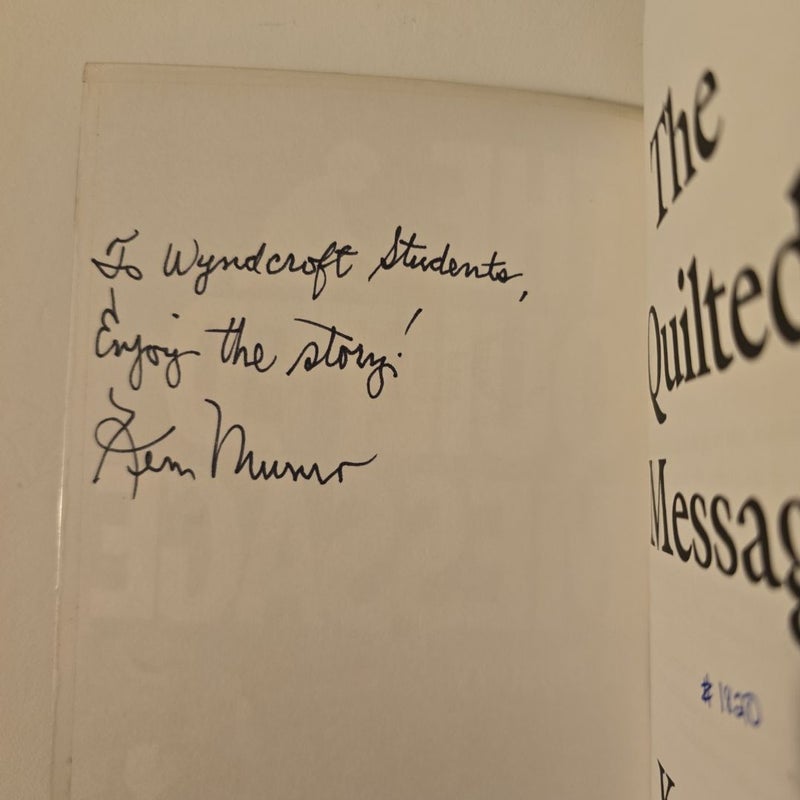 To Wyndcroft Students,
Enjoy the story!
Ken Munro
The
Quilted
Messag